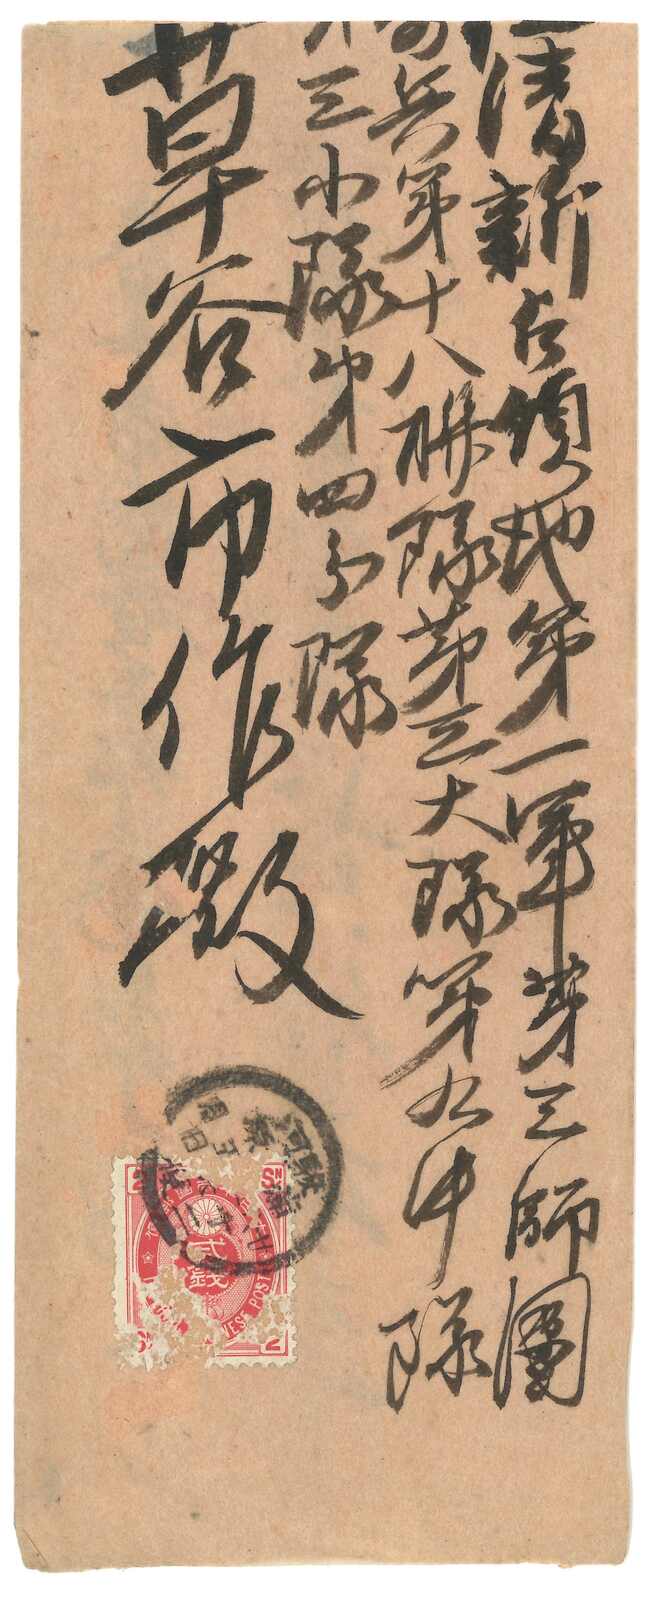 清新占領地第一軍第三師團
兵第十八聯隊第三大隊第九中隊
第三小隊第四分隊
草谷市作殿
駿河
貳錢
SN
POST